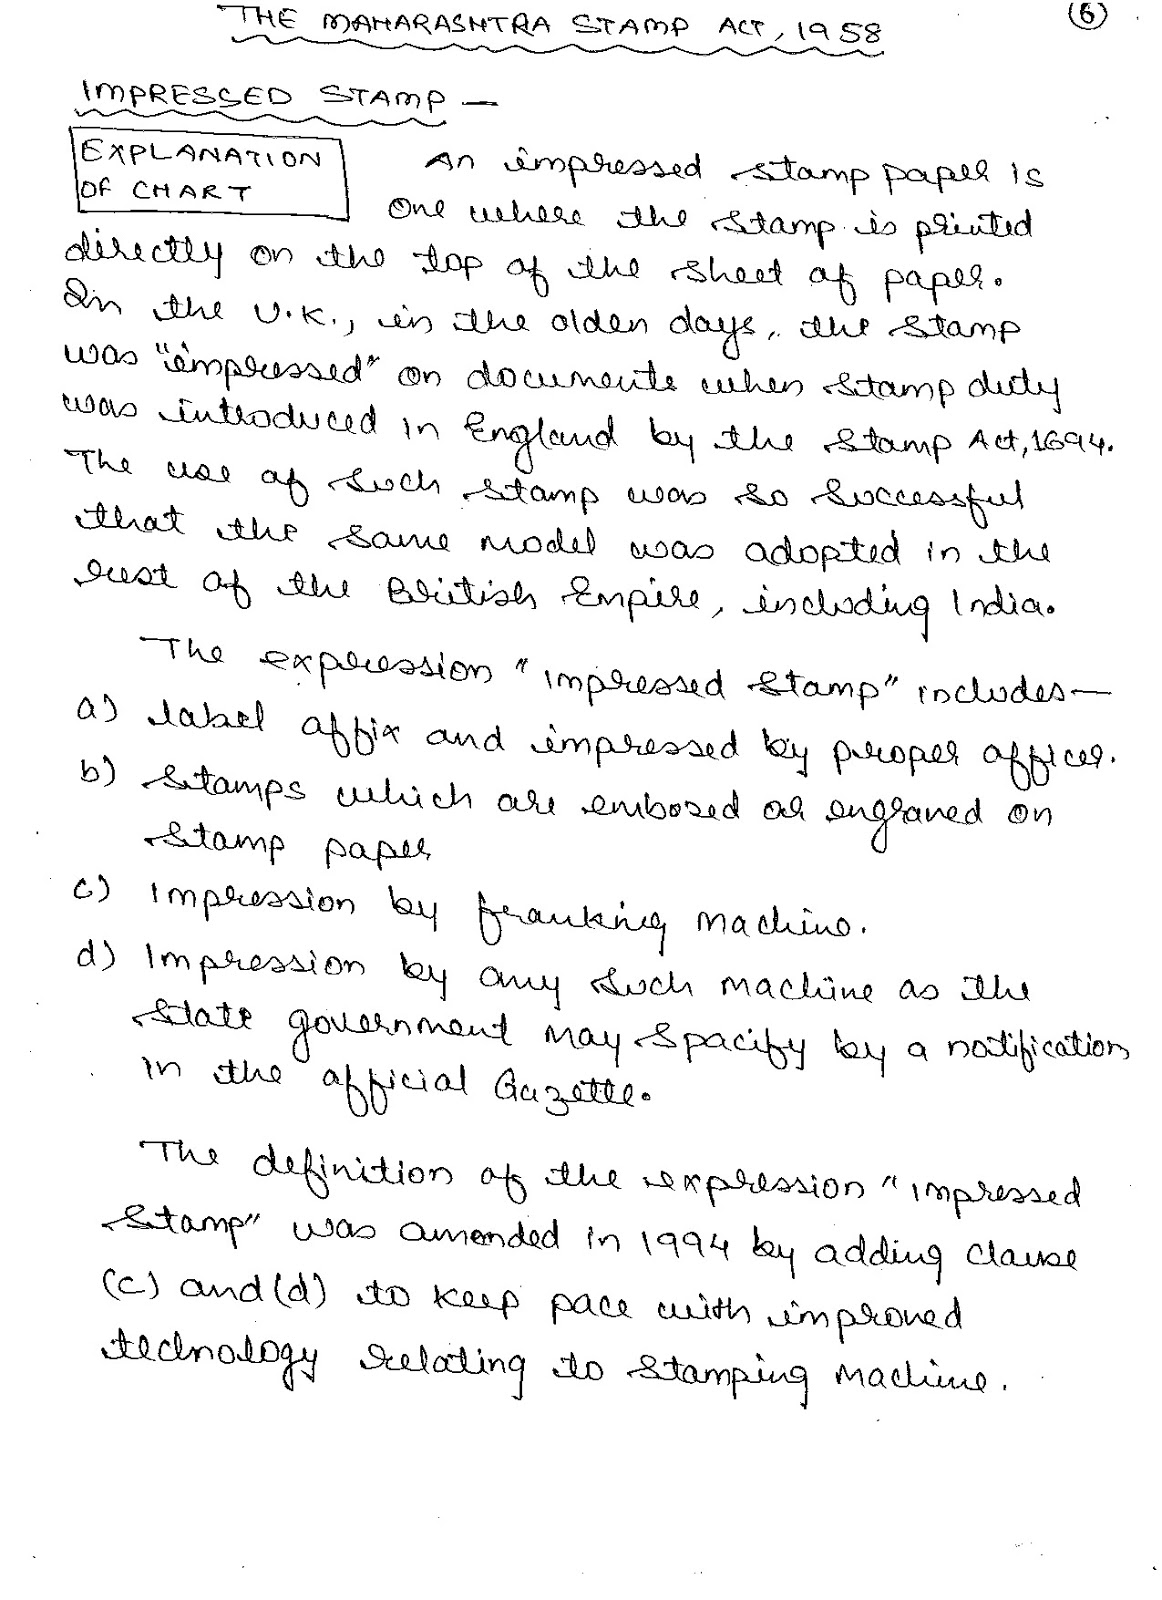 THE MAHARASHTRA STAMP ACT, 1958
(6)
IMPRESSED STAMP —
EXPLANATION
OF CHART
An impressed stamp paper is
one where the stamp is printed
directly on the top of the sheet of paper.
In the U.K., in the olden days, the stamp
was "impressed" on documents when stamp duty
was introduced in England by the Stamp Act, 1694.
The use of such stamp was so successful
that the same model was adopted in the
rest of the British Empire, including India.
The expression "impressed stamp" includes —
a) label affix and impressed by proper officer.
b) Stamps which are embosed or engraved on
stamp paper
c) Impression by franking machine.
d) Impression by any such machine as the
state government may spacify by a notification
in the official Gazette.
The definition of the expression "impressed
stamp" was amended in 1994 by adding clause
(c) and (d) to keep pace with improved
technology relating to stamping machine.